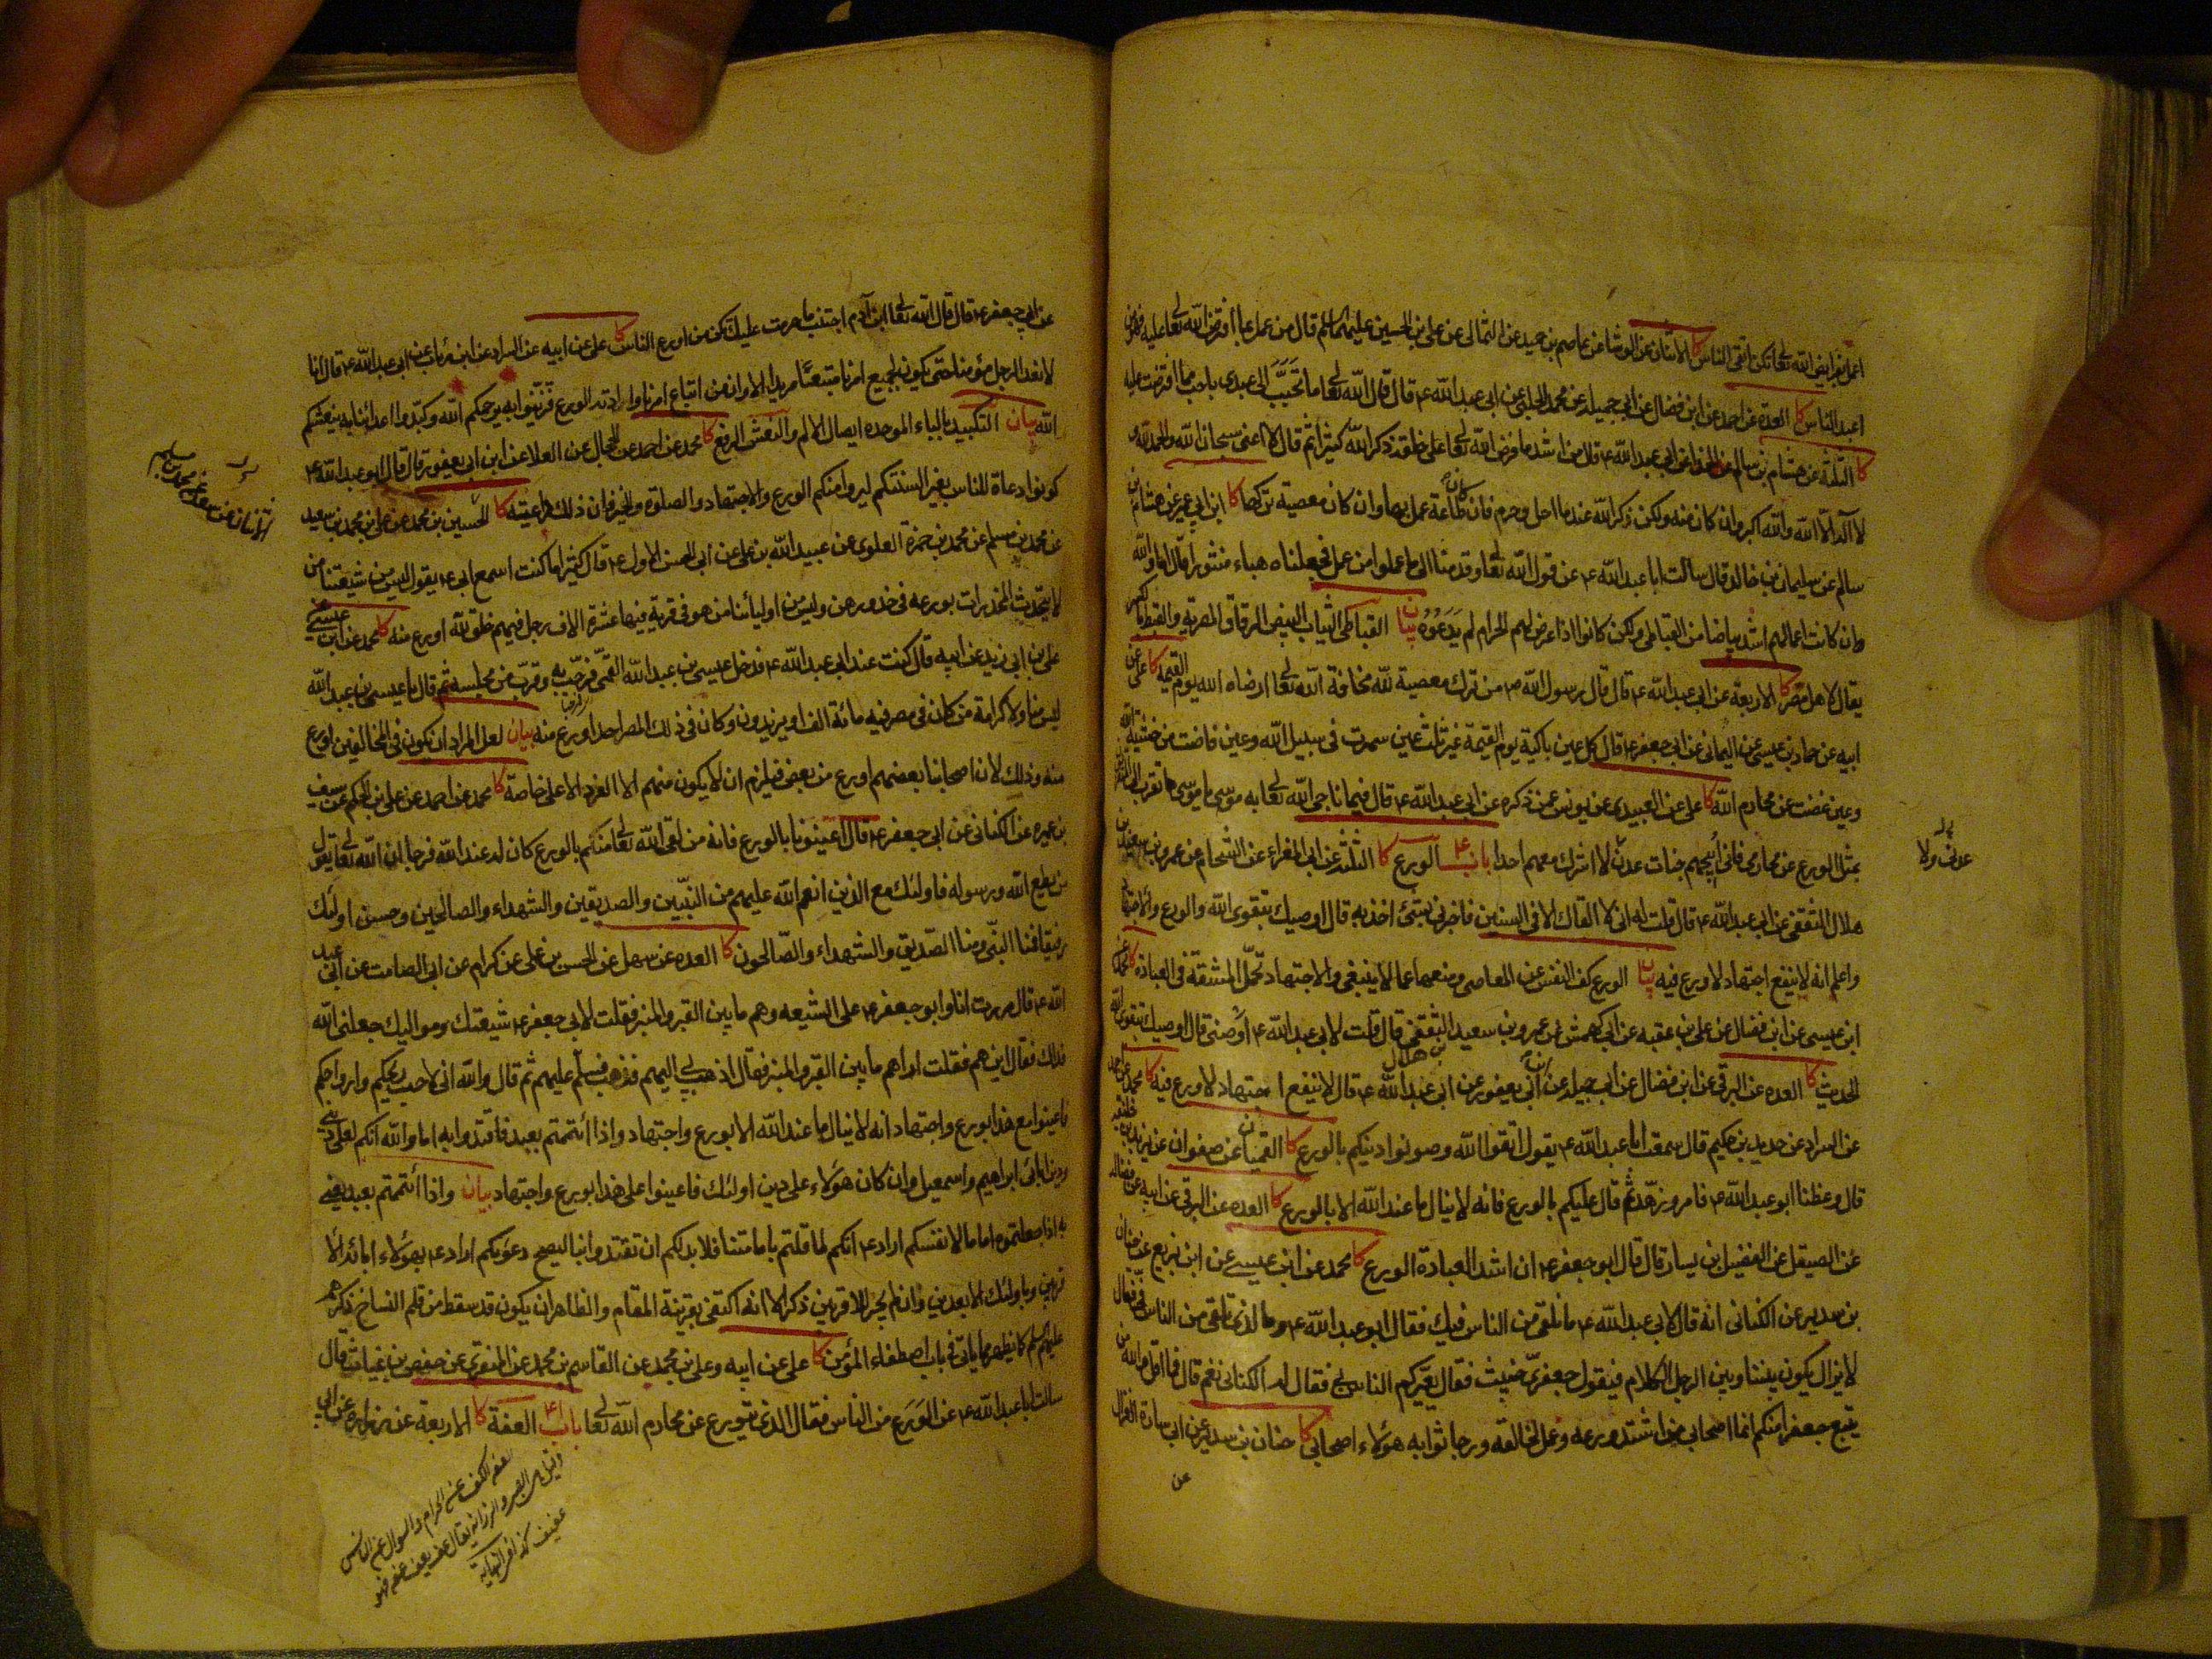 اعمل بفرايض الله تعالى تكن اتقى الناس كا الاثنان عن الوشا عن عاصم بن حميد عن الثمالى عن على بن الحسين عليهما السلم قال من عمل بما افترض الله تعالى عليه فهو من
اعبد الناس كا العدة عن احمد عن ابن فضال عن ابى جميله عن محمد الحلبى عن ابى عبدالله ع قال قال الله تعالى ما تحبب الى عبدى باحب مما افترضت عليه
كا الثلثة عن هشام بن سالم عن الحذا عن ابى عبدالله ع قال من اشد ما فرض الله تعالى على خلقه ذكر الله كثيرا ثم قال لا اعنى سبحان الله والحمد لله و
لا اله الا الله والله اكبر وان كان منه ولكن ذكر الله عند ما احل وحرم فان كان طاعة عمل بها وان كان معصية تركها كا ابن ابى عمير عن هشام بن
سالم عن سليمان بن خالد قال سالت ابا عبدالله ع عن قول الله تعالى وقدمنا الى ما عملوا من عمل فجعلناه هباء منثورا قال اما والله
وان كانت اعمالهم اشد بياضا من القباطى ولكن كانوا اذا عرض لهم الحرام لم يدعوه بيان القباطى الثياب البيض الرقاق المصرية والقبط بالكسر
يقال لاهل مصر كا الاربعة عن ابى عبدالله ع قال قال رسول الله ص من ترك معصية لله مخافة الله تعالى ارضاه الله يوم القيمة كا على عن
ابيه عن حماد بن عيسى عن اليمانى عن ابى جعفر ع قال كل عين باكية يوم القيمة غير ثلث عين سهرت فى سبيل الله وعين فاضت من خشية الله
وعين غضت عن محارم الله كا على عن العبيدى عن يونس عمن ذكره عن ابى عبدالله ع قال فيما ناجى الله تعالى به موسى يا موسى ما تقرب الى المتقربون
بمثل الورع عن محارمى فانى ابيحهم جنات عدن لا اشرك معهم احدا باب الورع كا الثلثة عن ابى المغراء عن الشحام عن عمرو بن سعيد بن
عدنى ولا
هلال الثقفى عن ابى عبدالله ع قال قلت له انى لا القاك الا فى السنين فاخبرنى بشئ اخذ به قال اوصيك بتقوى الله والورع والاجتهاد
واعلم انه لا ينفع اجتهاد لا ورع فيه بيان الورع كف النفس عن المعاصى ومنعها عما لا ينبغى والاجتهاد تحمل المشقة فى العبادة كا محمد عن
ابن عيسى عن ابن فضال عن على بن عقبه عن ابى كهمش عن عمرو بن سعيد بن هلال الثقفى قال قلت لابى عبدالله ع اوصنى قال اوصيك بتقوى الله
الحديث كا العدة عن البرقى عن ابن فضال عن ابى جميله عن ابن ابى يعفور عن ابى عبدالله ع قال لا ينفع اجتهاد لا ورع فيه كا محمد عن احمد
عن السراد عن حديد بن حكيم قال سمعت ابا عبدالله ع يقول اتقوا الله وصونوا دينكم بالورع كا القميان عن صفوان عن يزيد بن خليفه
قال وعظنا ابو عبدالله ع فامر وزهد ثم قال عليكم بالورع فانه لا ينال ما عند الله الا بالورع كا العدة عن البرقى عن ابيه عن فضاله
عن الصيقل عن الفضيل بن يسار قال قال ابو جعفر ع ان اشد العبادة الورع كا محمد عن ابن عيسى عن ابن بزيع عن حنان
بن سدير عن الكنانى انه قال لابى عبدالله ع ما نلقى من الناس فيك فقال ابو عبدالله ع وما الذى تلقى من الناس فى فقال
لا يزال يكون بيننا وبين الرجل الكلام فيقول جعفرى خبيث فقال يعيركم الناس بى فقال له الكنانى نعم قال فما اقل والله من
يتبع جعفرا منكم انما اصحابى من اشتد ورعه وعمل لخالقه ورجا ثوابه هؤلاء اصحابى كا حنان بن سدير عن ابى سارة الغزال
عن
عن ابى جعفر ع قال قال الله تعالى ابن آدم اجتنب ما حرمت عليك تكن من اورع الناس كا على عن ابيه عن السراد عن ابن رئاب عن ابى عبدالله ع قال انا
لا نعد الرجل مؤمنا حتى يكون لجميع امرنا متبعا مريدا الا وان من اتباع امرنا وارادته الورع فتزينوا به يرحمكم الله وكبدوا اعدائنا به ينعشكم
الله بيان التكبيد بالباء الموحدة ايصال الالم والنعش الرفع كا محمد عن احمد عن الحجال عن العلا عن ابن ابى يعفور قال قال ابو عبدالله ع
كونوا دعاة للناس بغير السنتكم ليروا منكم الورع والاجتهاد والصلوة والخير فان ذلك داعية كا الحسين بن محمد عن على بن محمد بن سعيد
الاثنان عن سعدان عن محمد بن مسلم
عن محمد بن مسلم عن محمد بن حمزة العلوى عن عبيد الله بن على عن ابى الحسن الاول ع قال كثيرا ما كنت اسمع ابى ع يقول ليس من شيعتنا من
لا يتحدث المخدرات بورعه فى خدورهن وليس من اوليائنا من هو فى قرية فيها عشرة الاف رجل فيهم خلق لله اورع منه كا محمد عن ابن عيسى
على بن ابى زيد عن ابيه قال كنت عند ابى عبدالله ع فدخل عيسى بن عبدالله القمى فرحب به وقرب من مجلسه ثم قال يا عيسى بن عبدالله
ليس منا ولا كرامة من كان فى مصر فيه مائة الف او يزيدون وكان فى ذلك المصر احد اورع منه بيان لعل المراد ان يكون فى المخالفين اورع
منه وذلك لان اصحابنا بعضهم اورع من بعض فيلزم ان لا يكون منهم الا الفرد الاعلى خاصة كا محمد عن احمد عن على بن الحكم عن سيف
بن عميره عن الكنانى عن ابى جعفر ع قال اعينونا بالورع فانه من لقى الله تعالى منكم بالورع كان له عند الله فرجا ان الله تعالى يقول
من يطع الله ورسوله فاولئك مع الذين انعم الله عليهم من النبيين والصديقين والشهداء والصالحين وحسن اولئك
رفيقا فمنا النبى ومنا الصديق والشهداء والصالحون كا العدة عن سهل عن الحسن بن على عن كرام عن ابى الصامت عن ابى عبد
الله ع قال مررت انا وابو جعفر ع على الشيعه وهم ما بين القبر والمنبر فقلت لابى جعفر ع شيعتك ومواليك جعلنى الله
فداك فقال اين هم فقلت اراهم ما بين القبر والمنبر فقال اذهب بى اليهم فذهب فسلم عليهم ثم قال والله انى لاحب ريحكم وارواحكم
فاعينوا مع هذا بورع واجتهاد انه لا ينال ما عند الله الا بورع واجتهاد واذا ائتممتم بعبد فاقتدوا به اما والله انكم لعلى دينى
ودين آبائى ابراهيم واسمعيل وان كان هؤلاء على دين اولئك فاعينوا على هذا بورع واجتهاد بيان واذا ائتممتم بعبد يعنى
به اذا جعلتموه اماما لانفسكم اراد ع انكم لما قلتم بامامتنا فلا بد لكم ان تقتدوا بنا ليصح دعوتكم اراد ع بهؤلاء ابائه الا
قربين وباولئك الابعدين وان لم يجر للاقربين ذكر الا انه اكتفى بقرينة المقام والظاهر ان يكون قد سقط من قلم النساخ ذكرهم
عليهم السلم كما يظهر مما ياتى فى باب اصطفاء المؤمن كا على عن ابيه وعلى بن محمد عن القاسم بن محمد عن المنقرى عن حفص بن غياث قال
سالت ابا عبدالله ع عن الورع من الناس فقال الذى يتورع عن محارم الله تعالى باب العفة كا الاربعة عن زراره عن ابى
العفه الكف عن الحرام والسوال عن الناس
وقيل هى الصبر والنزاهة يقال عف يعف عفه فهو
عفيف كذا فى النهاية